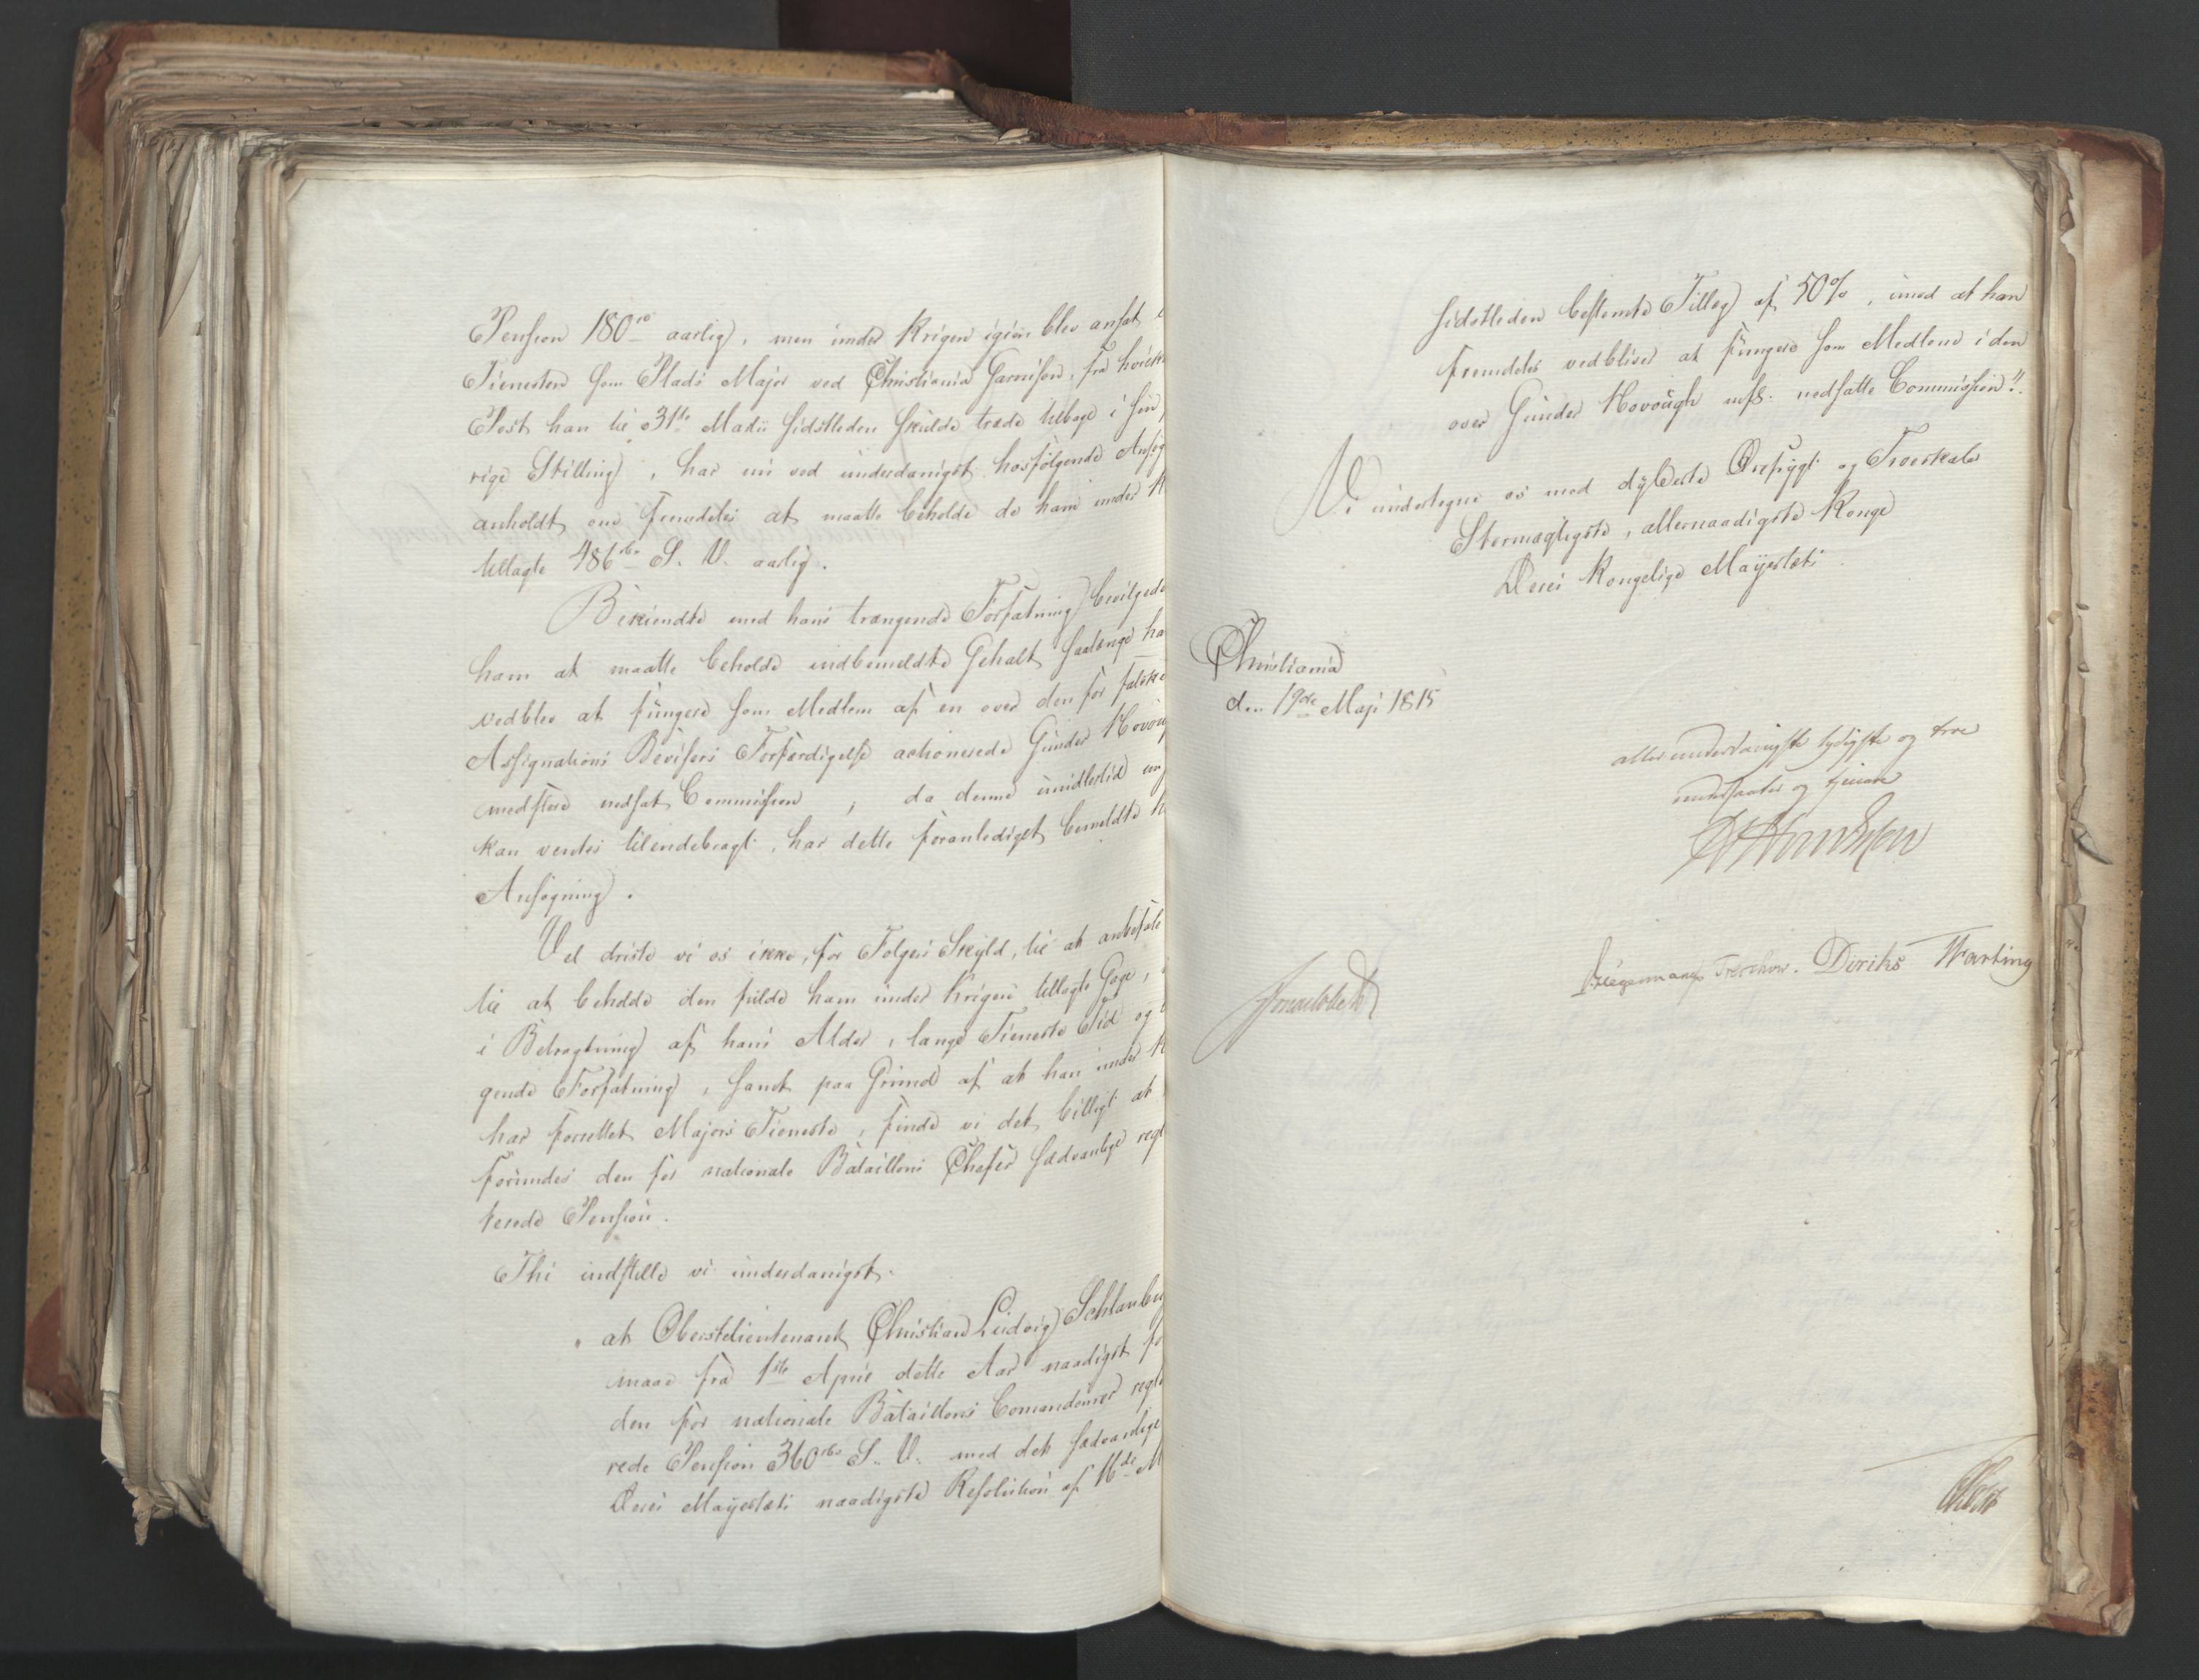 Pension 180 rd aarlig, men under Krigen igien blev ansat
Tienesten som Plads Major ved Christiania Garnison, fra hvilk
Post han til 31te Martii sidstleden skulde træde tilbage i sin
rige Stilling, har nu ved underdanigst hosfølgende Ansøg
anholdt om fremdeles at maatte beholde de ham under K
tillagte 486 rbd S. V. aarlig.
Bekiendte med hans trængende Forfatning bevilgede
ham at maatte beholde indbemeldte Gehalt saalænge ha
vedblev at fungere som Medlem af en over den for falske
Assignations Bevisers Forfærdigelse actionerede Gunder Hovoug
medflere nedsat Commission, da denne imidlertid
kan ventes tilendebragt, har dette foranlediget bemeldte
Ansøgning.
Vel driste vi os ikke, for Følgers Skyld, til at anbefale
til at beholde den fulde ham under Krigen tillagte Gage,
i Betragtning af hans Alder, lange Tieneste Tid og
gende Forfatning, samt paa Grund af at han under K
har forrettet Majors Tieneste, finde vi det billigt at
forundes den for nationale Batallions Chefer sædvanlige regl
terede Pension.
Thi indstille vi underdanigst:
" at Oberstlieutenant Christian Ludvig Schlanbu
maae fra 1ste April dette Aar naadigst fo
den for nationale Bataillons Comandeurer regle
rede Pension 360 rbd S. V. med det sædvanlige
Deres Mayestæts naadigste Resolution af 16de M
sidstleden bestemte Tillæg af 50%, imod at han
fremdeles vedbliver at fungere som Medlem i den
over Gunder Hovough mfl. nedsatte Commission".
Vi undertegne os med dybeste Ærefrygt og Troeskab
Stormægtigste, allernaadigste Konge
Deres Kongelige Mayestæts
Christiania
den 19de Maji 1815
allerunderdanigste lydigste og troe
undersaatter og tjenere
Hegermann Treschow. Diriks Motzfeldt